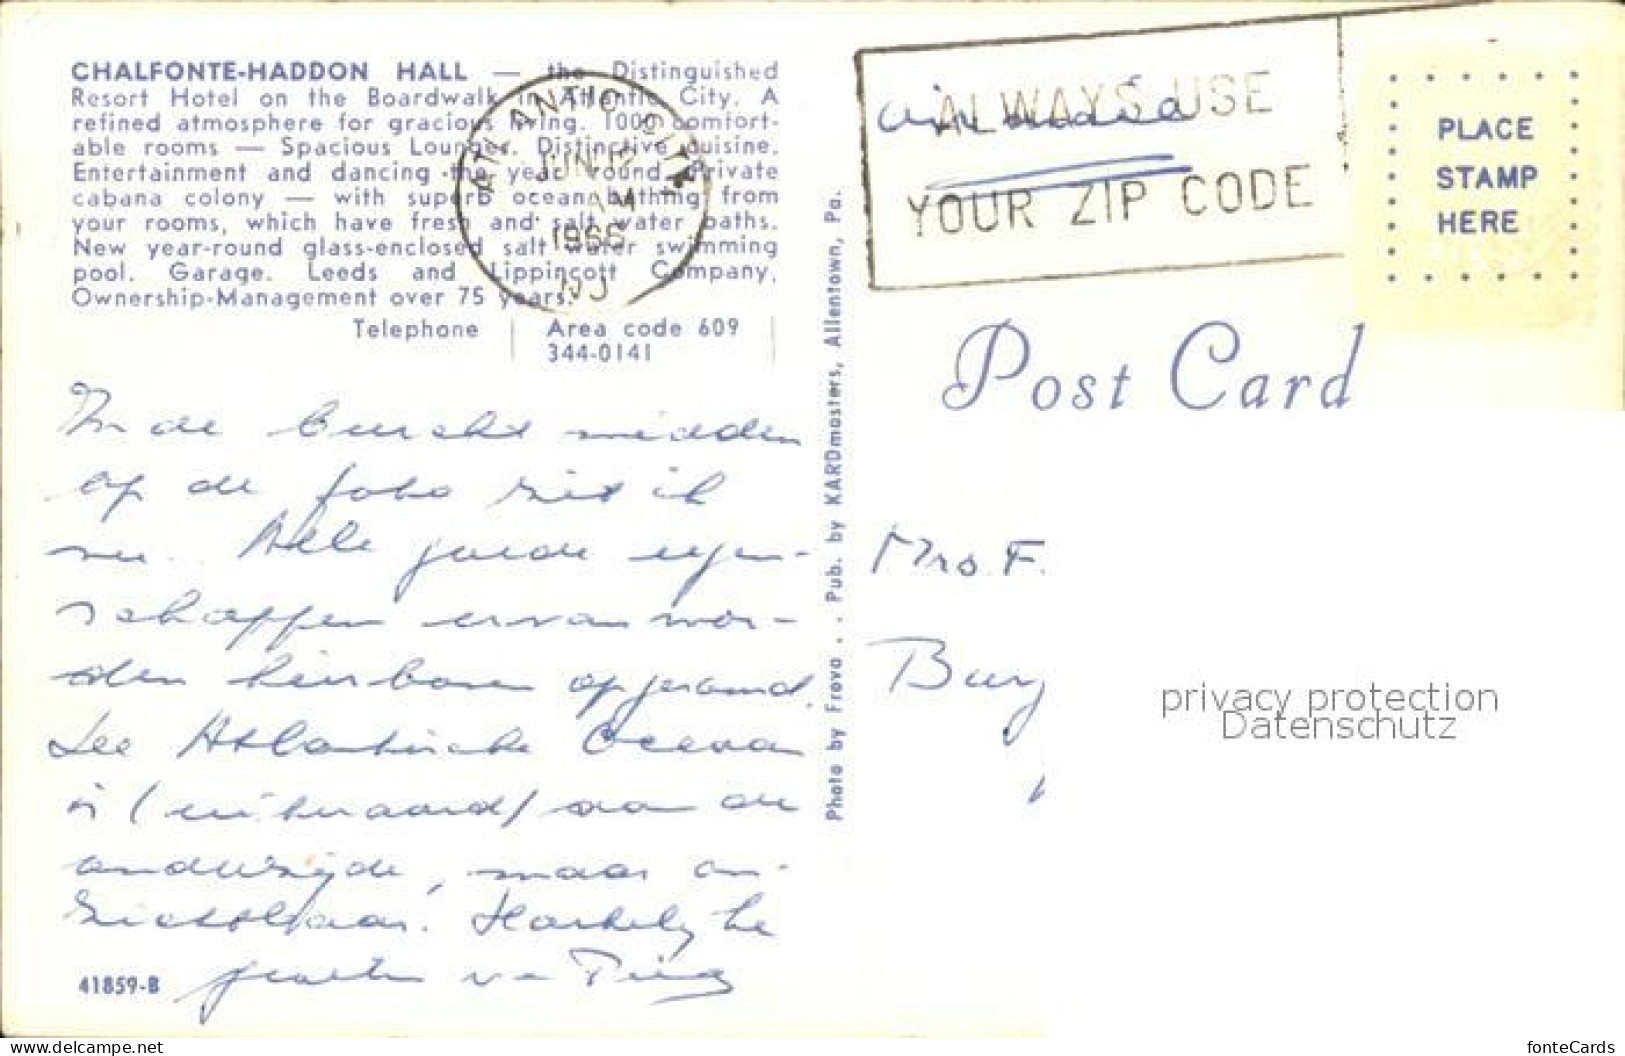 CHALFONTE-HADDON HALL — the Distinguished
Resort Hotel on the Boardwalk in Atlantic City. A
refined atmosphere for gracious living. 1000 comfort-
able rooms — Spacious Lounges. Distinctive cuisine.
Entertainment and dancing the year round. Private
cabana colony — with superb ocean bathing from
your rooms, which have fresh and salt water baths.
New year-round glass-enclosed salt water swimming
pool. Garage. Leeds and Lippincott Company,
Ownership-Management over 75 years.
Telephone | Area code 609
344-0141
ATLANTIC CITY
JUN 12
AM
1966
NJ
ALWAYS USE
YOUR ZIP CODE
PLACE
STAMP
HERE
Post Card
In de buurt midden
op de foto zit ik
nu. Alle goede eigen-
schappen ervan wor-
den hierboven opgesomd.
De Atlantische Oceaan
is (uiteraard) aan de
andere zijde, maar on-
zichtbaar. Hartelijke
groeten van
41859-B
Photo by Frova . . . Pub. by KARDmasters, Allentown, Pa.
Mrs. F.
Burg
privacy protection
Datenschutz
www.delcampe.net
fonteCards